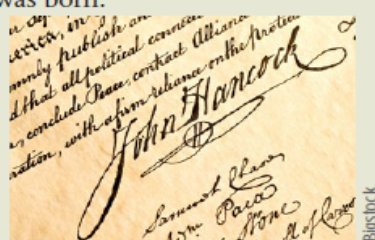 was born.
erica, in
mnly publish an
d that all political connec
, conclude Peace, contract Alliance
ration, with a firm reliance on the protec
John Hancock
Samuel Chase
Wm Paca
Stone
ll of Carro
Bigstock